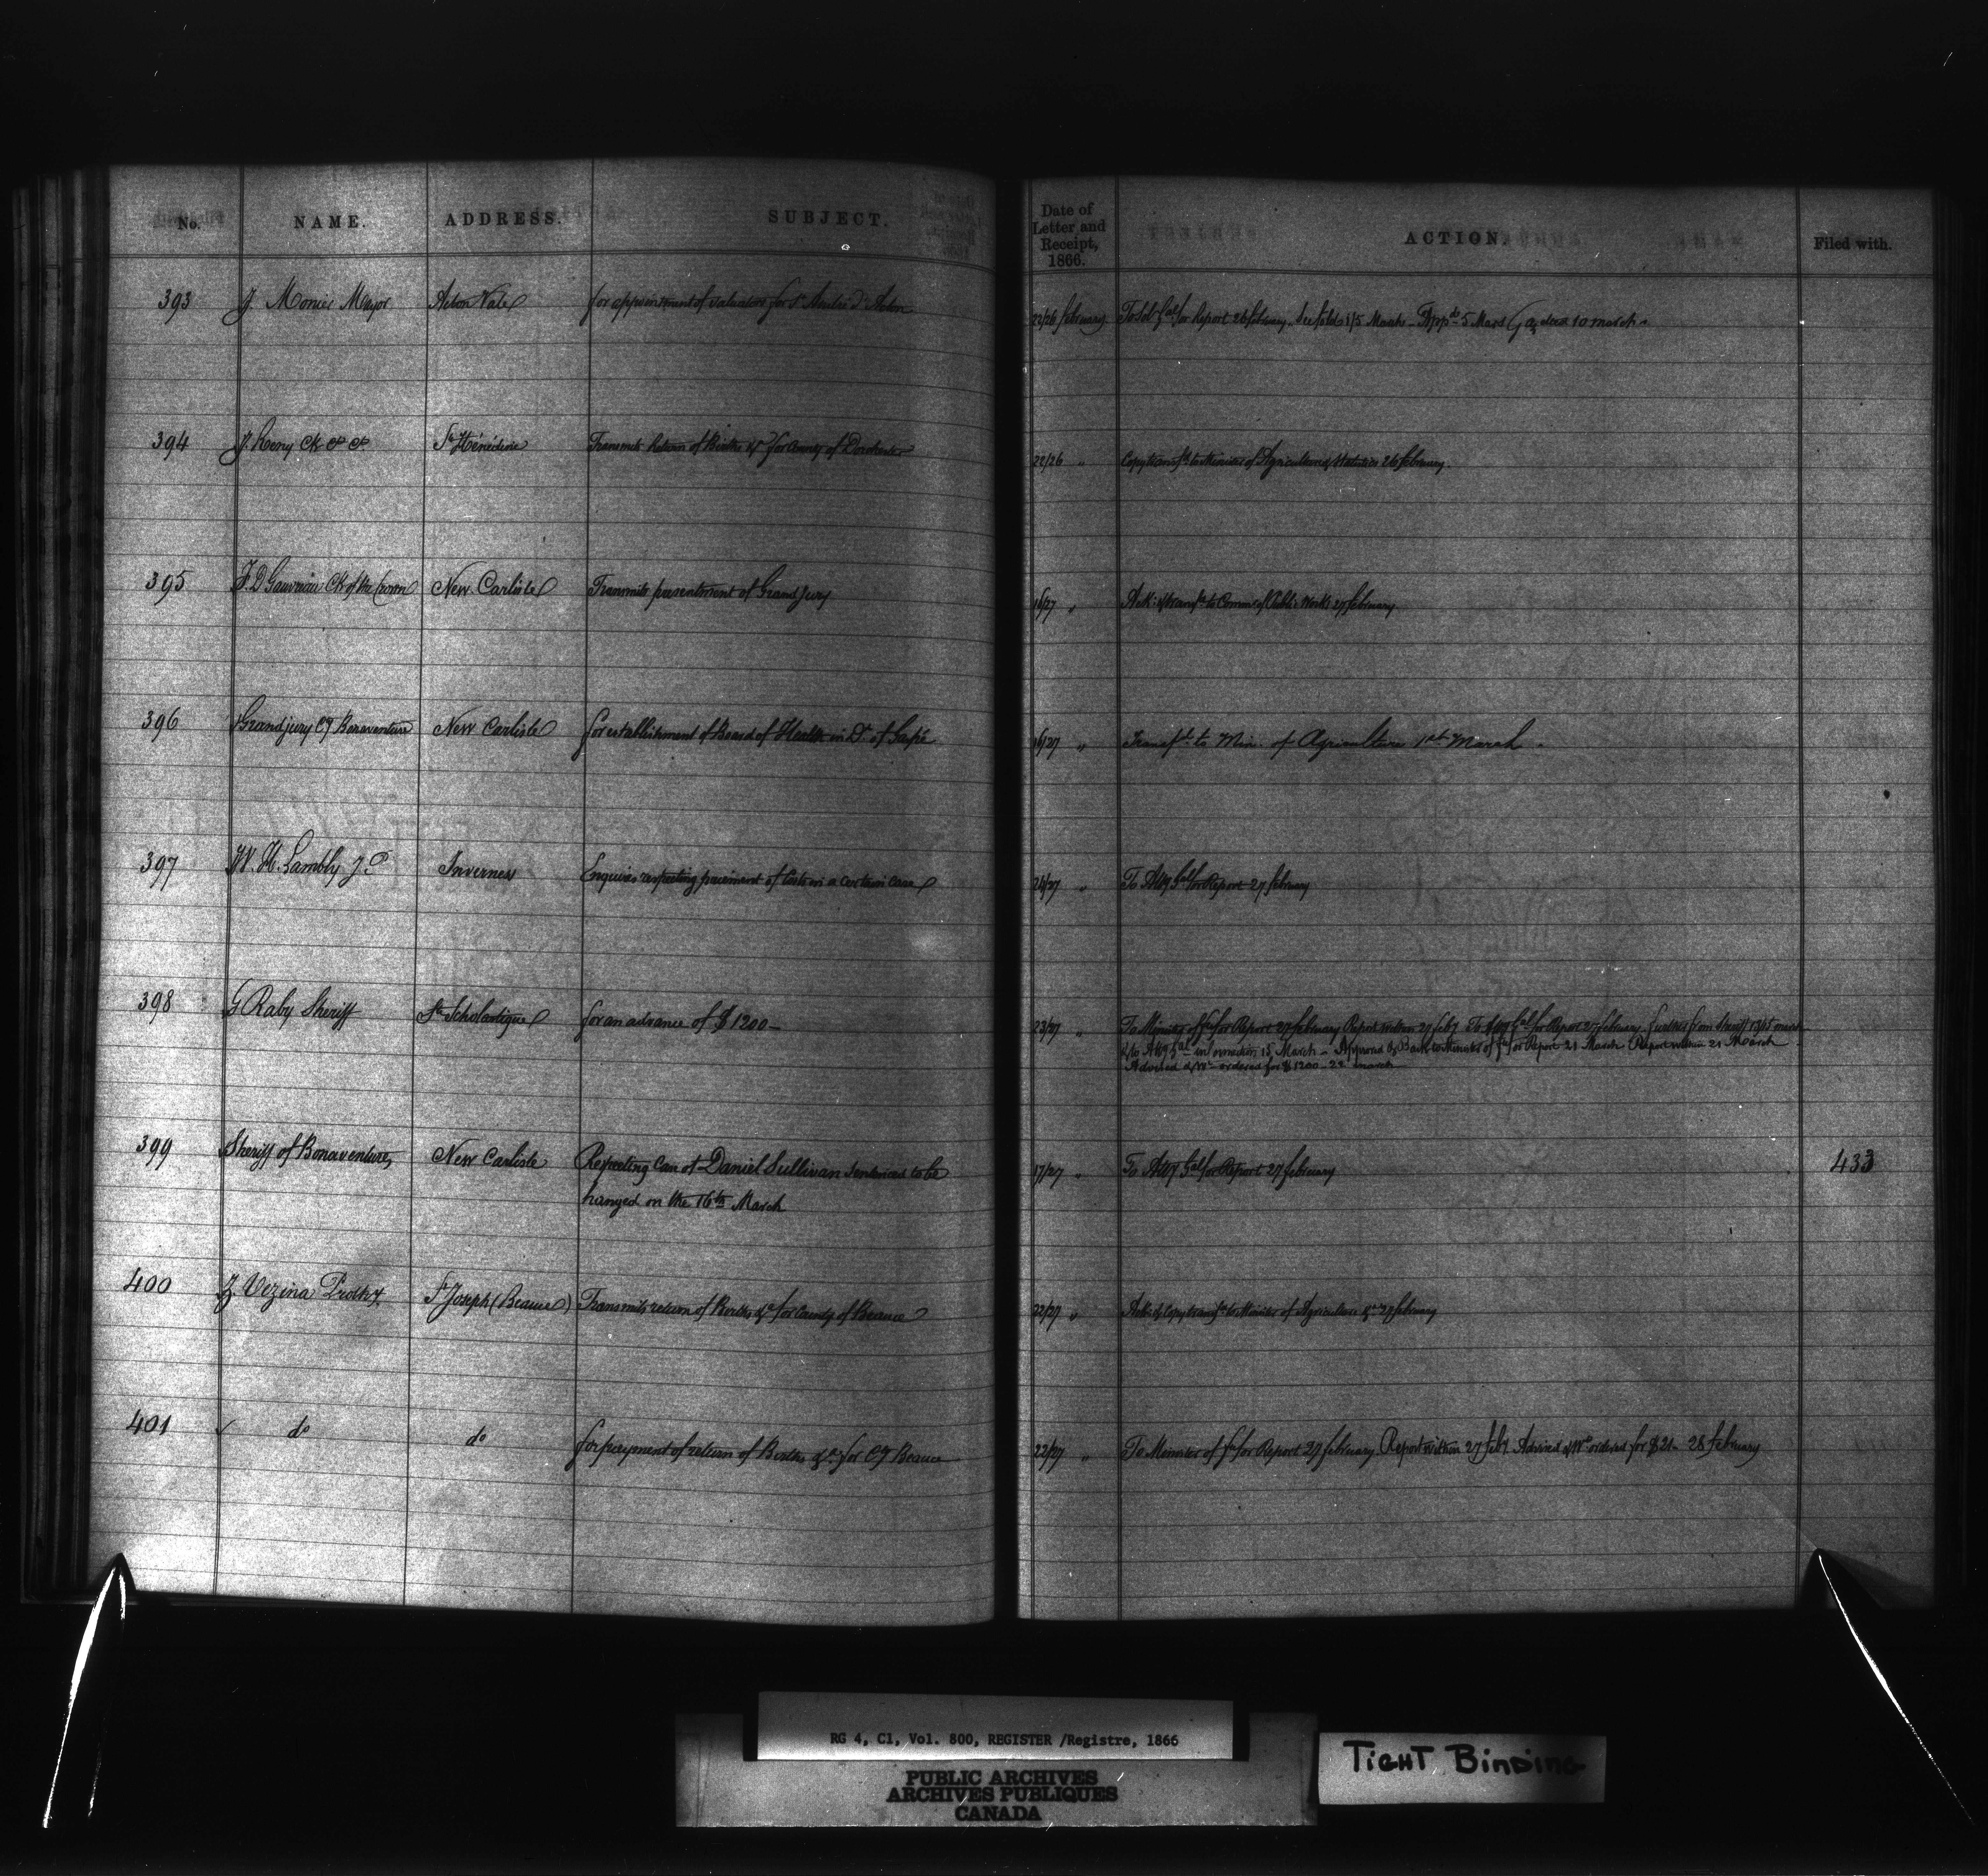 No. NAME. ADDRESS. SUBJECT. Date of Letter and Receipt, 1866. ACTION. Filed with.
393 J. Monier Mayor Acton Vale for appointment of valuators for St André d'Acton 22/26 february To Sol. Gal for Report 26 february 1/5 March 5 10 march
394 J. Remy Ck St Hénédine Transmits Return of Births &c for County of Dorchester 22/26 " Copy transfd to Minister of Agriculture & Statistics 26 february
395 F. D Gauvreau Ck of the Crown New Carlisle Transmits presentment of Grand Jury 16/27 " Ack: & transfd to Commr of Public Works 27 february
396 Grand jury Cy Bonaventure New Carlisle for establishment of Board of Health in Dt. of Gaspé 16/27 " Transfd. to Min. of Agriculture 1st March.
397 W. H. Lambly J.P. Inverness Enquires respecting paiement of Costs in a certain case 24/27 " To Atty Gal for Report 27 february
398 G Raby Sheriff Ste Scholastique for an advance of $1200- 23/27 " To Minister of f. for Report 27 february Report within 27 feby To Atty Gal for Report 27 february. further from Sheriff 13/15 march
& to Atty Gal information 15 March - Approved & Back to Minister of f. for Report 21 March Report within 21 March
Advised & Wt ordered for $1200 - 22 march
399 Sheriff of Bonaventure New Carlisle Respecting Case of Daniel Sullivan sentenced to be 17/27 " To Atty Gal for Report 27 february 433
hanged on the 16th March
400 Z Vezina Prothy St Joseph (Beauce) Transmits return of Births &c for County of Beauce 22/27 " Ack: & Copy transfd to Minister of Agriculture &c 27 february
401 do do for payment of return of Births &c for Cy Beauce 22/27 " To Minister of f. for Report 27 february. Report within 27 feby Advised & Wt ordered for $21 - 28 february
RG 4, C1, Vol. 800, REGISTER /Registre, 1866
PUBLIC ARCHIVES
ARCHIVES PUBLIQUES
CANADA
TIGHT BINDING